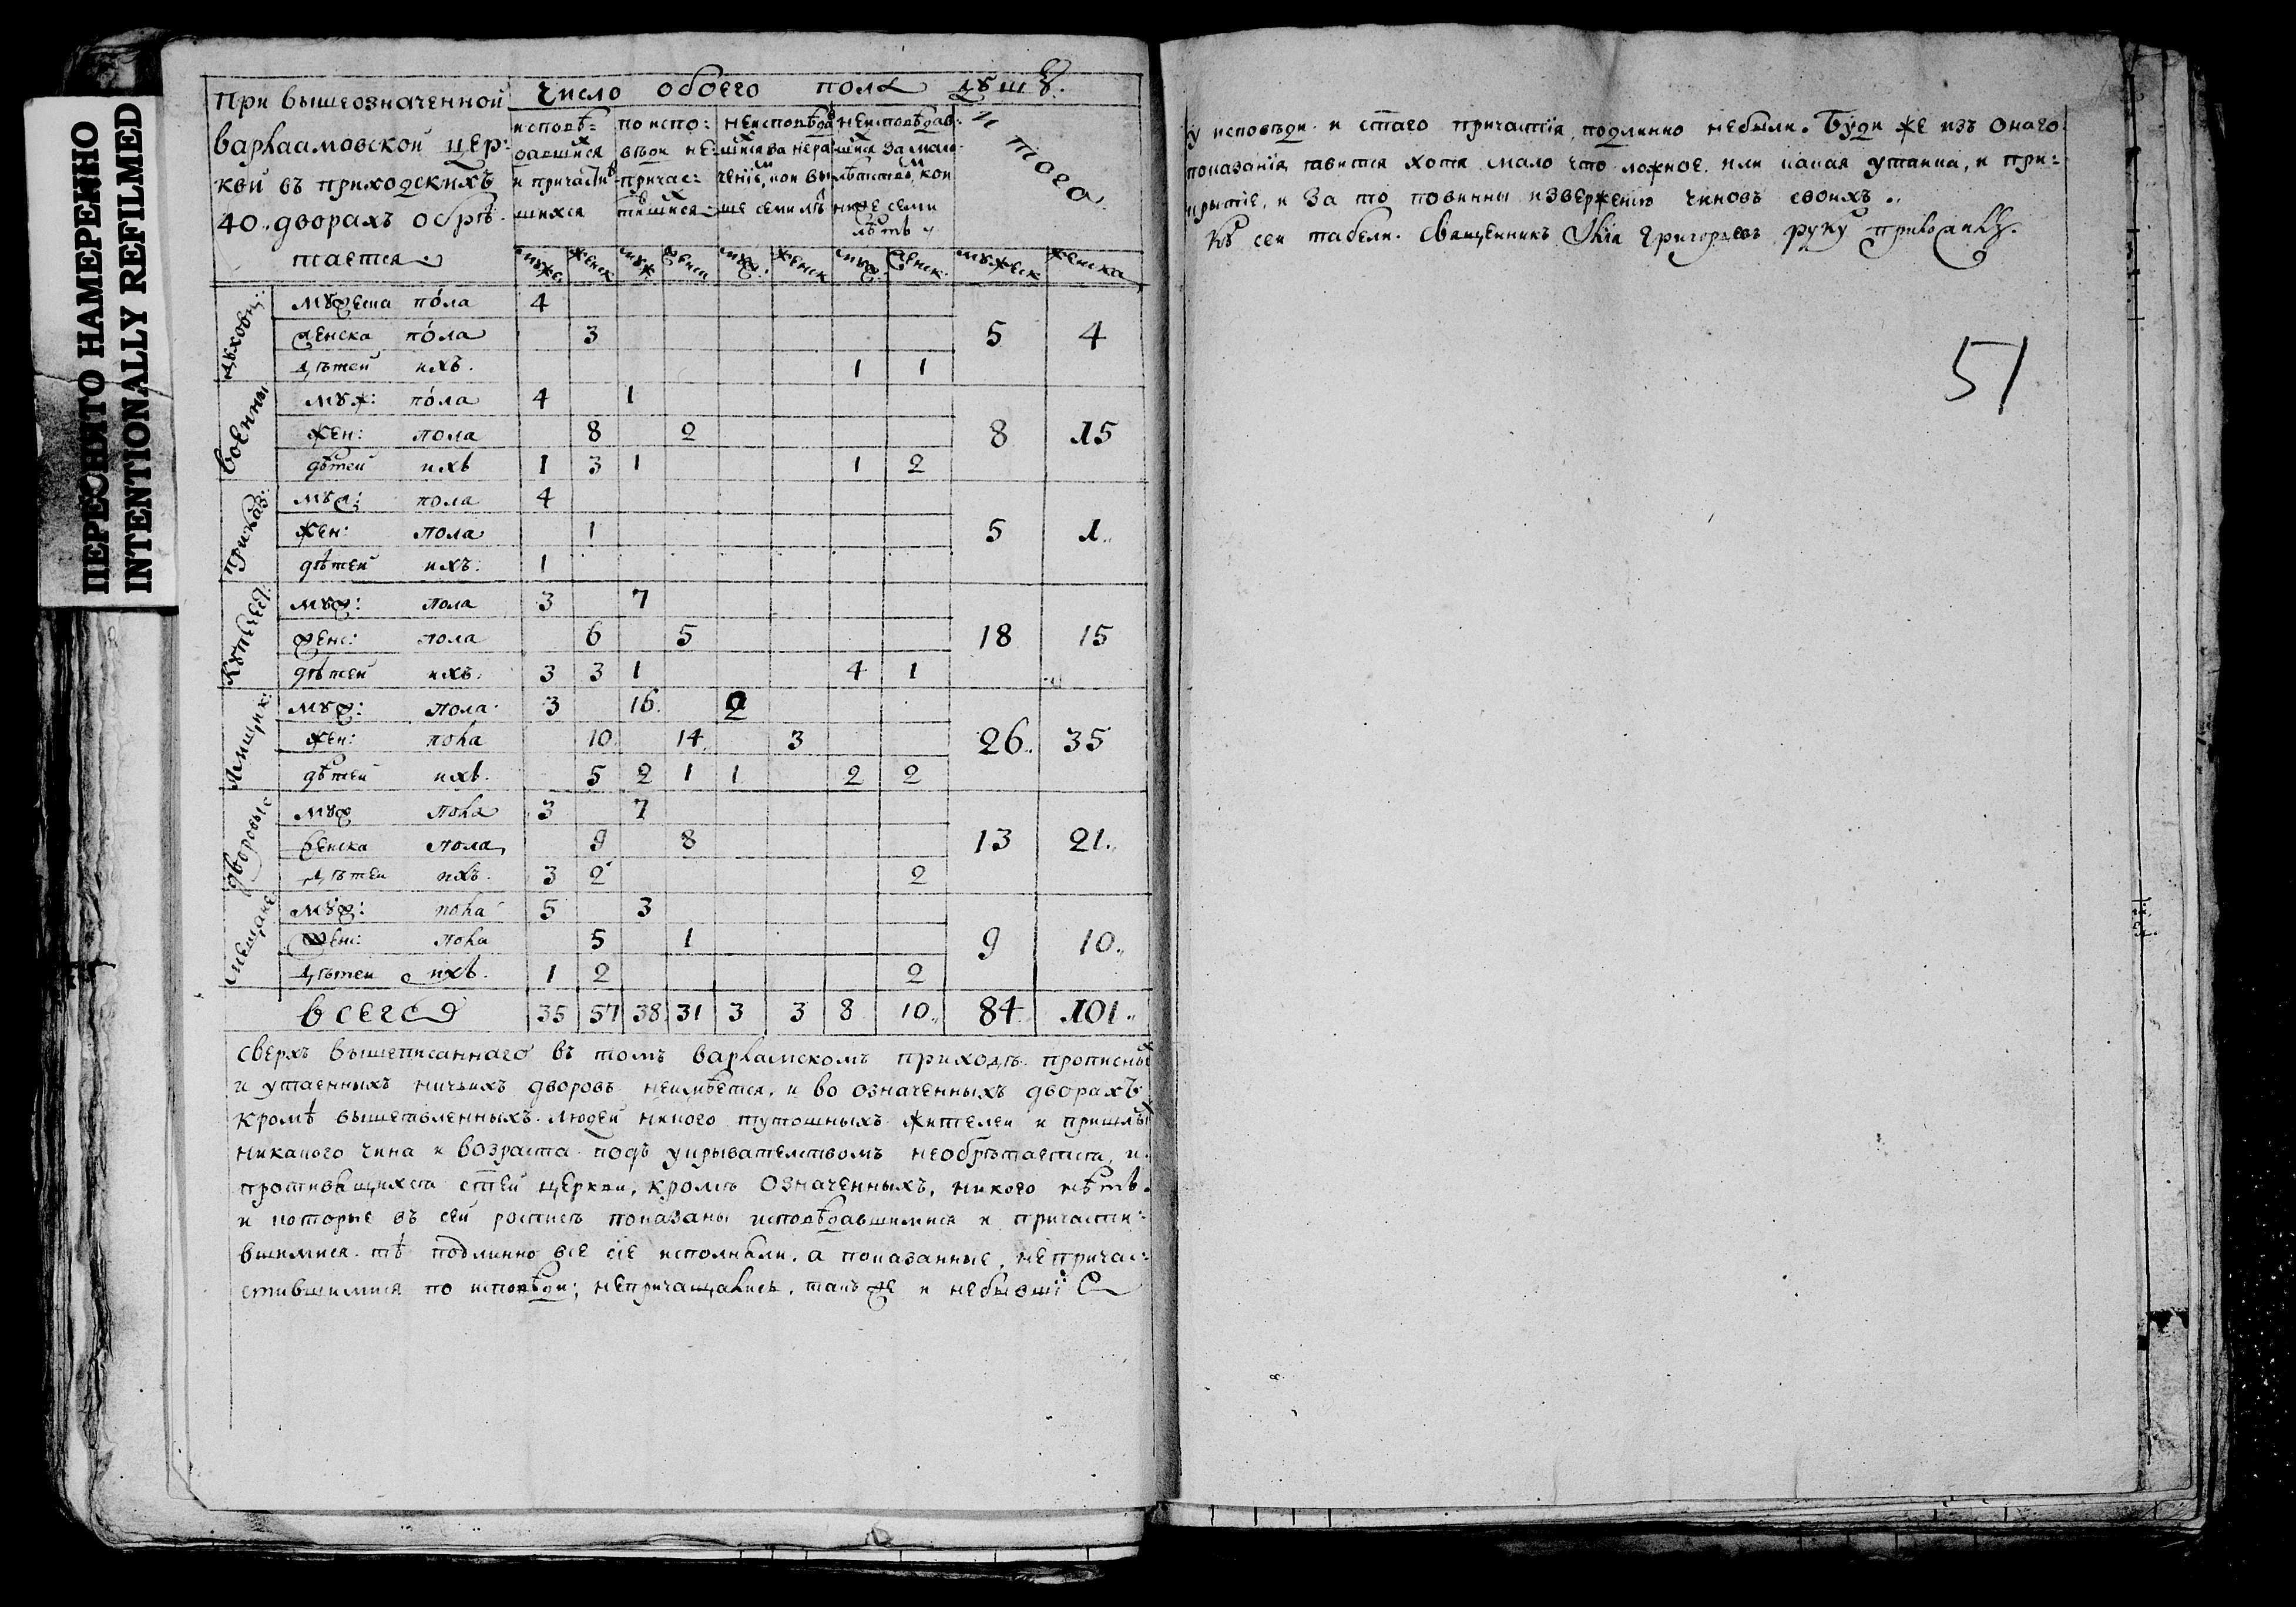 ПЕРЕСНЯТО НАМЕРЕННО
INTENTIONALLY REFILMED
При вышеозначенной
варлаамовской цер:
кви въ приходскихъ
40. дворахъ обрѣ:
тается
число обоего пола душъ.
исповѣ= по испо: неисповѣда неисповѣдав:
давшихся вѣди не: шихся за нера шихся за мало
и причастив причас: ченiемъ, кои вы лѣтствомъ, кои
шихся тившихся: ше семи лѣтъ ниже семи
лѣтъ
итого
мужес женск муж женск муж: женск муж: женск: мужеск женска
духовн:
мужеска пола 4
женска пола 3 5 4
дѣтей ихъ. 1 1
военны
муж: пола 4 1
жен: пола 8 2 8 15
дѣтей ихъ 1 3 1 1 2
приказ:
муж: пола 4
жен: пола 1 5 1..
дѣтей ихъ: 1
купецъ:
муж: пола 3 7
женс: пола 6 5 18 15
дѣтей ихъ: 3 3 1 4 1
ямщик:
муж: пола 3 16. 2
жен: пола 10. 14. 3 26.. 35
дѣтей ихъ. 5 2 1 1 2 2
дворовые
муж пола 3 7
женска пола 9 8 13 21..
дѣтей ихъ. 3 2 2
мещане
муж: пола 5 3
жен: пола 5 1 9 10..
дѣтей ихъ. 1 2 2
всего 35 57 38 31 3 3 8 10.. 84 101..
сверхъ вышеписаннаго въ томъ варламскомъ приходѣ прописныхъ
и утаенныхъ ничьихъ дворовъ неимѣется, и во означенныхъ дворахъ
кромѣ вышеявленныхъ людей никого тутошныхъ жителей и пришлыхъ
никакого чина и возраста подъ укрывателствомъ необрѣтается, и
противящихся стѣй церкви, кромѣ означенныхъ, никого нѣтъ.
и которые въ сей росписѣ показаны исповѣдавшимися и причасти:
вшимися. тѣ подлинно все сiе исполняли. а показанные, непричас:
стившимися по исповѣди; непричащались. такъ же и небывшiи
у исповѣди и стаго причастiя, подлинно небыли. Буди же изъ онаго
показанiя, явится хотя мало что ложное. или какая утайка, и при:
крытiе, и за то повинны извержению чиновъ своихъ..
Къ сей табели. священникъ Илiя григорьевъ руку приложилъ.
51